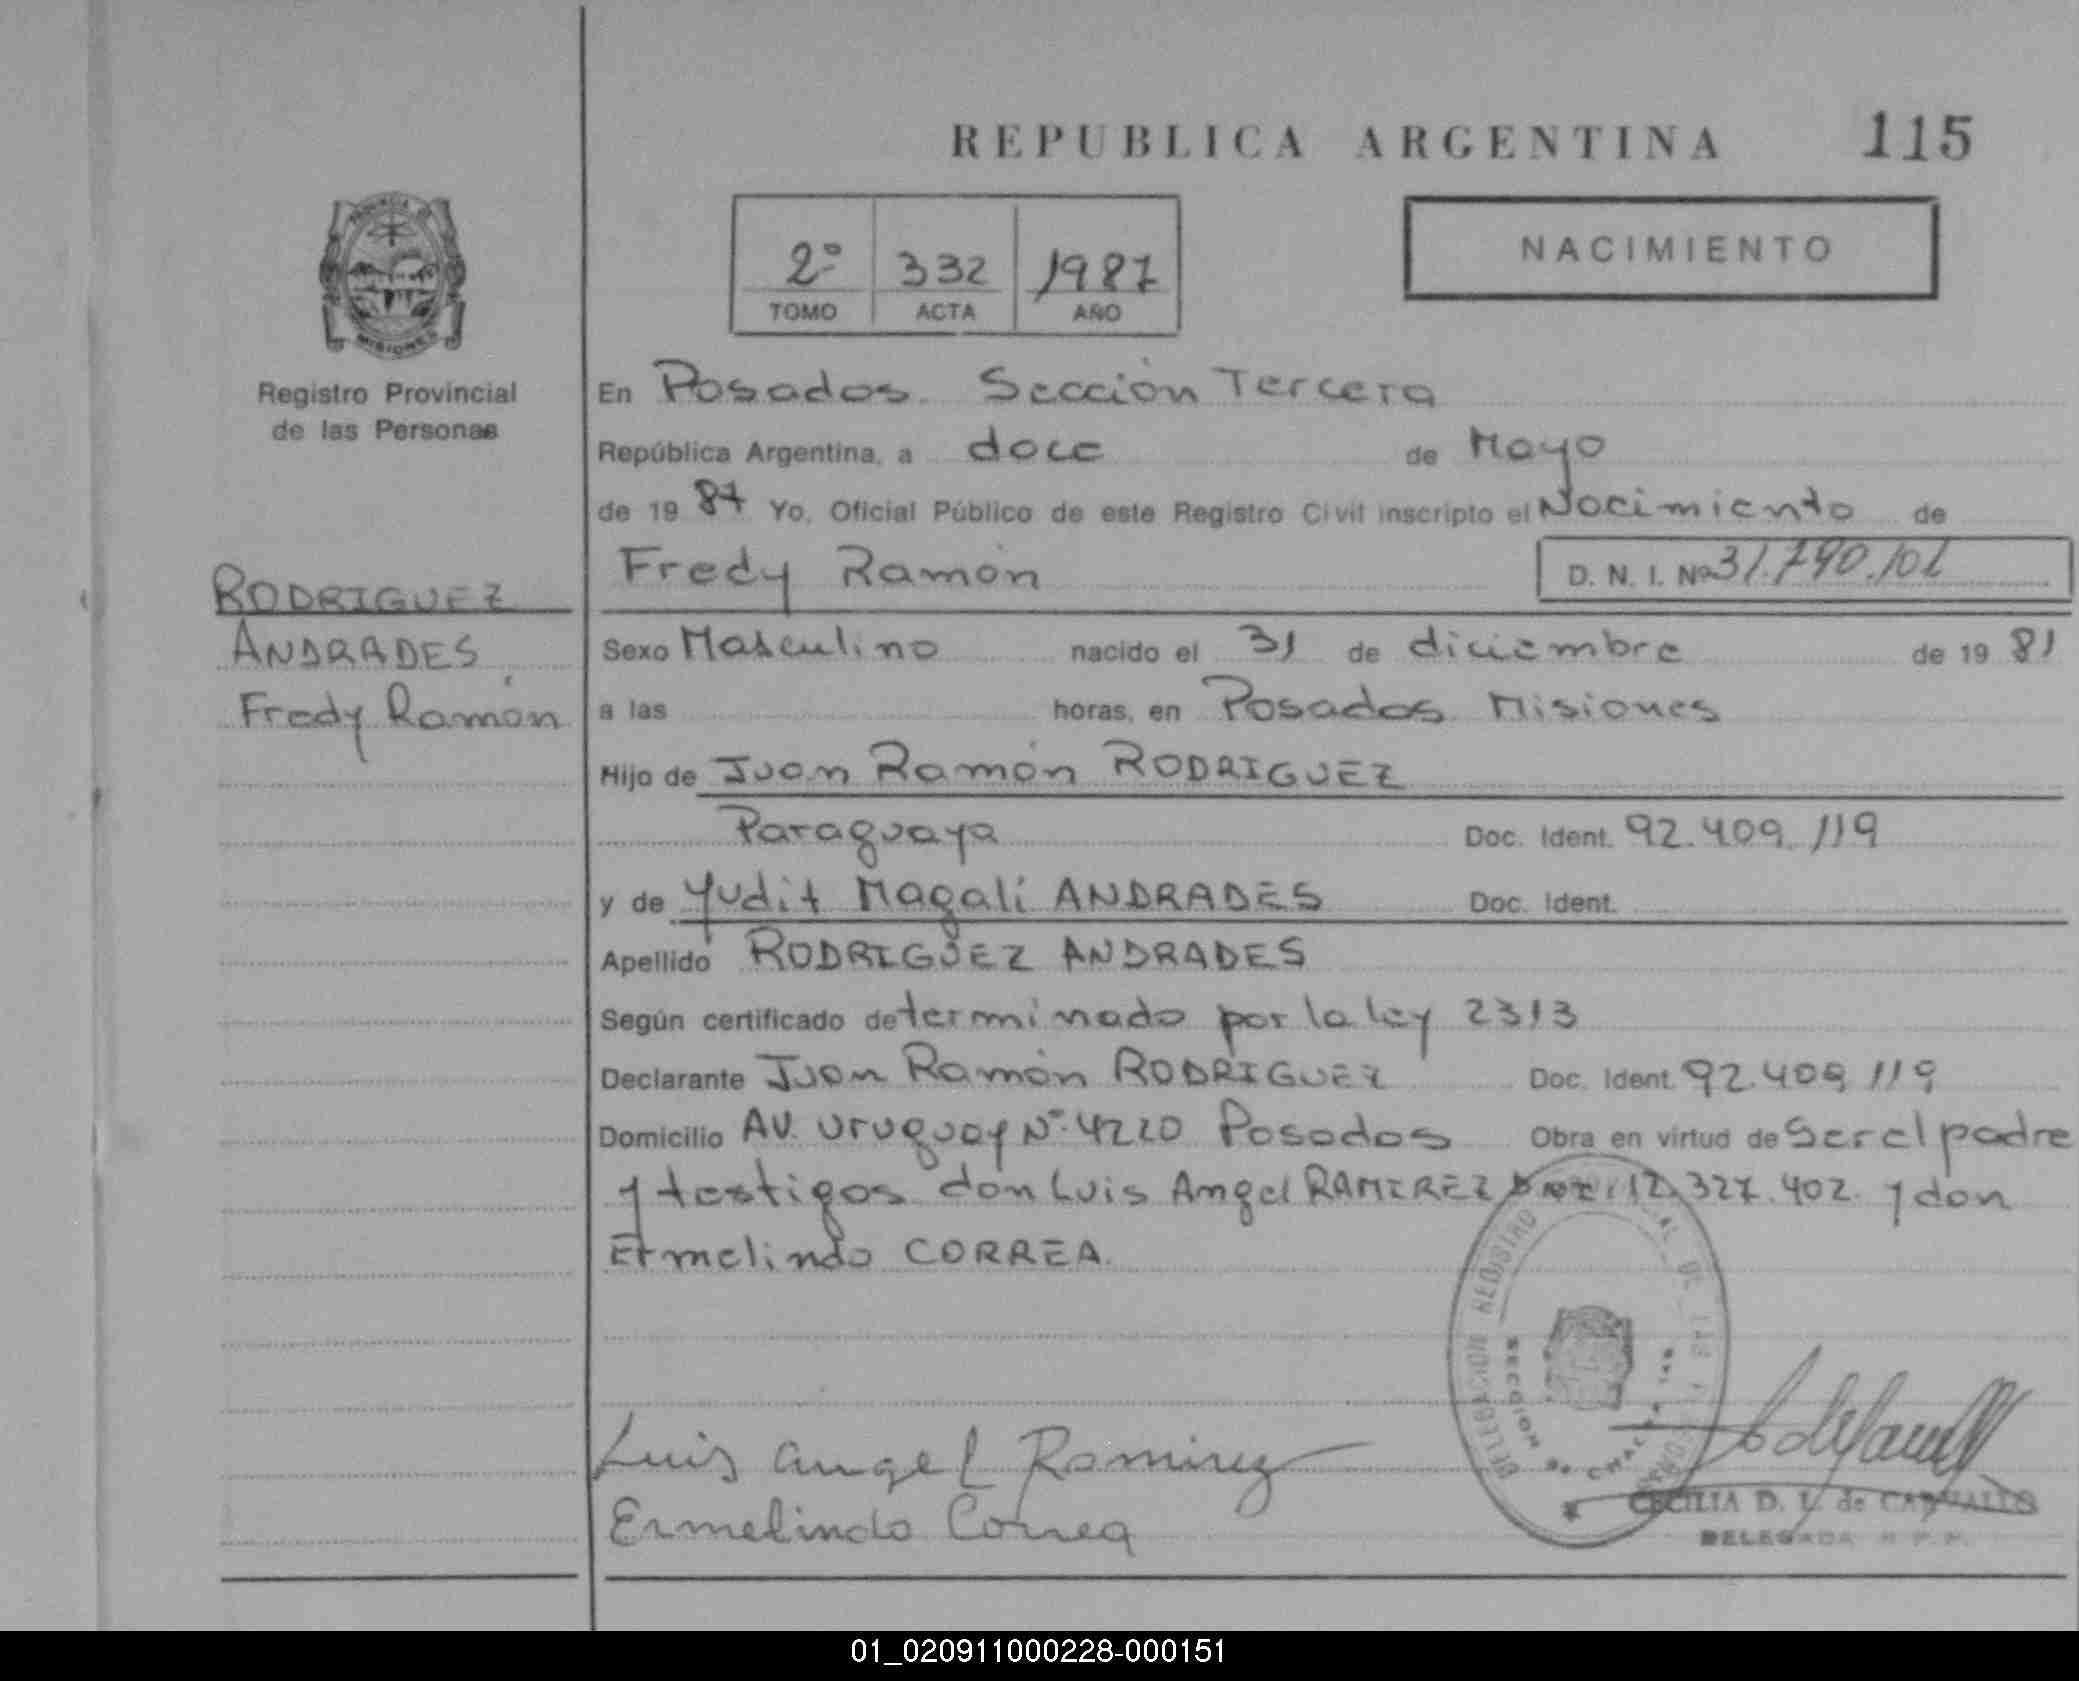 REPUBLICA ARGENTINA 115
2º 332 1987
TOMO ACTA AÑO
NACIMIENTO
MISIONES
Registro Provincial
de las Personas
RODRIGUEZ
ANDRADES
Fredy Ramón
En Posadas. Sección Tercera
República Argentina, a doce de Mayo
de 19 87 Yo, Oficial Público de este Registro Civil inscripto el Nacimiento de
Fredy Ramón D. N. I. Nº 31.790.102
Sexo Masculino nacido el 31 de diciembre de 19 81
a las horas, en Posadas Misiones
Hijo de Juan Ramón RODRIGUEZ
Paraguaya Doc. Ident. 92.409.119
y de Yudit Magali ANDRADES Doc. Ident.
Apellido RODRIGUEZ ANDRADES
Según certificado determinado por la ley 2313
Declarante Juan Ramón RODRIGUEZ Doc. Ident. 92.409.119
Domicilio AV. Uruguay Nº 4220 Posadas Obra en virtud de Ser el padre
y testigos don Luis Angel RAMIREZ 12.327.402. y don
Ermelindo CORREA.
DELEGACION REGISTRO DE LAS
SECCION DE CHACRA 145
Luis angel Ramirez
Ermelindo Correa
CECILIA D. L. de CARVALLO
DELEGADA R. P. P.
01_020911000228-000151